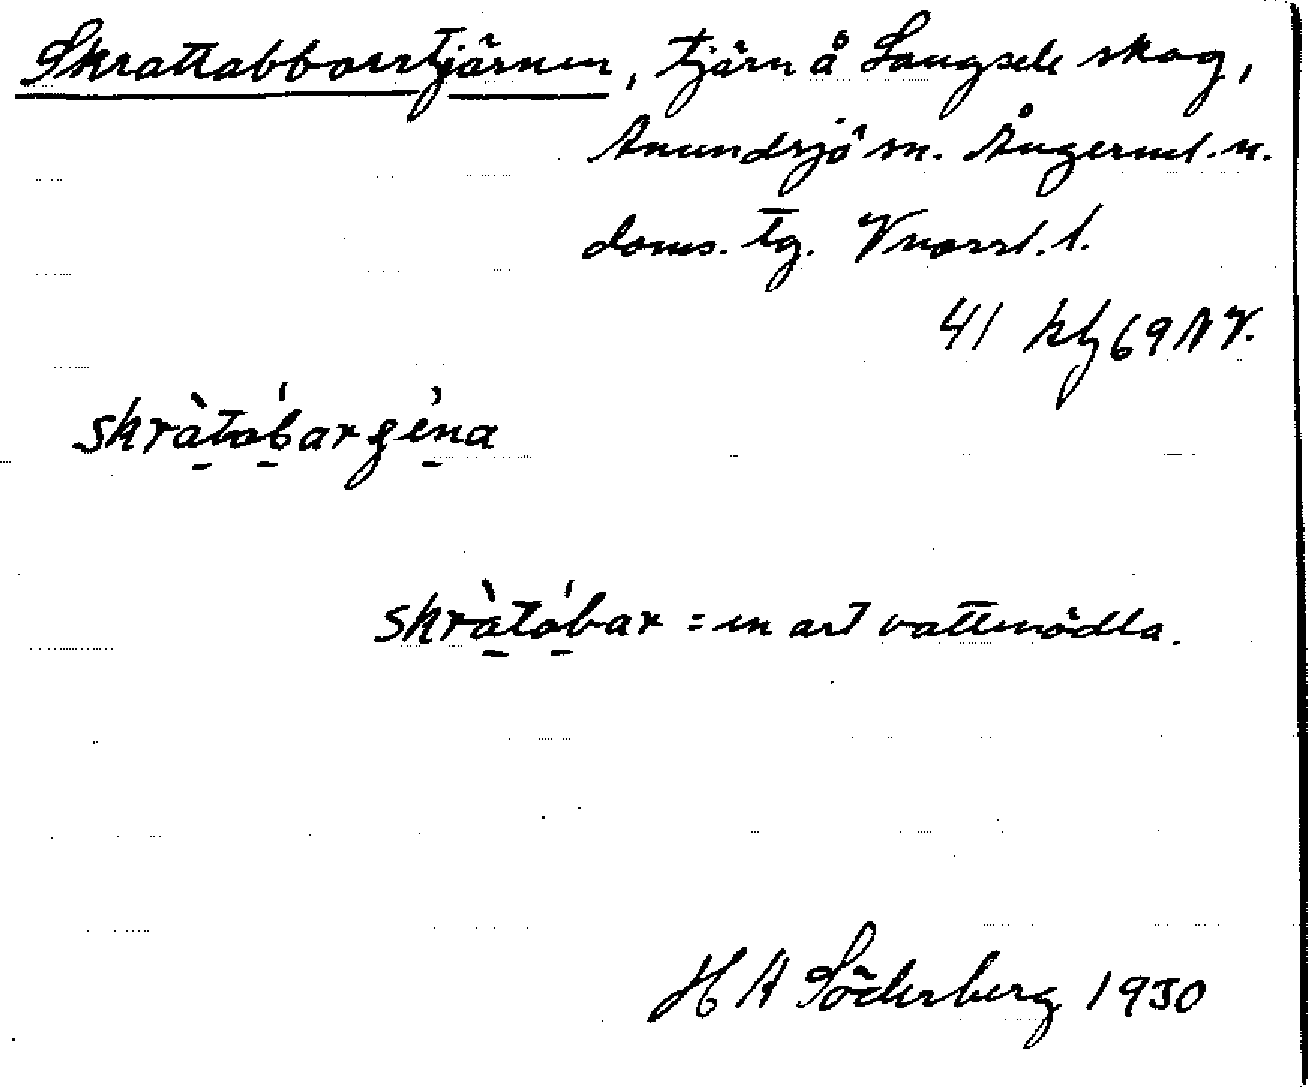 Skrattabborrtjärnen, tjärn å Långsele skog,
Anundsjö sn. Ångerml. n.
doms. tg. Vnorrl. l.
41 hlj 69 NV.
skràtábarɟéna
skràtábar = en art vattenödla.
H A Söderberg 1930